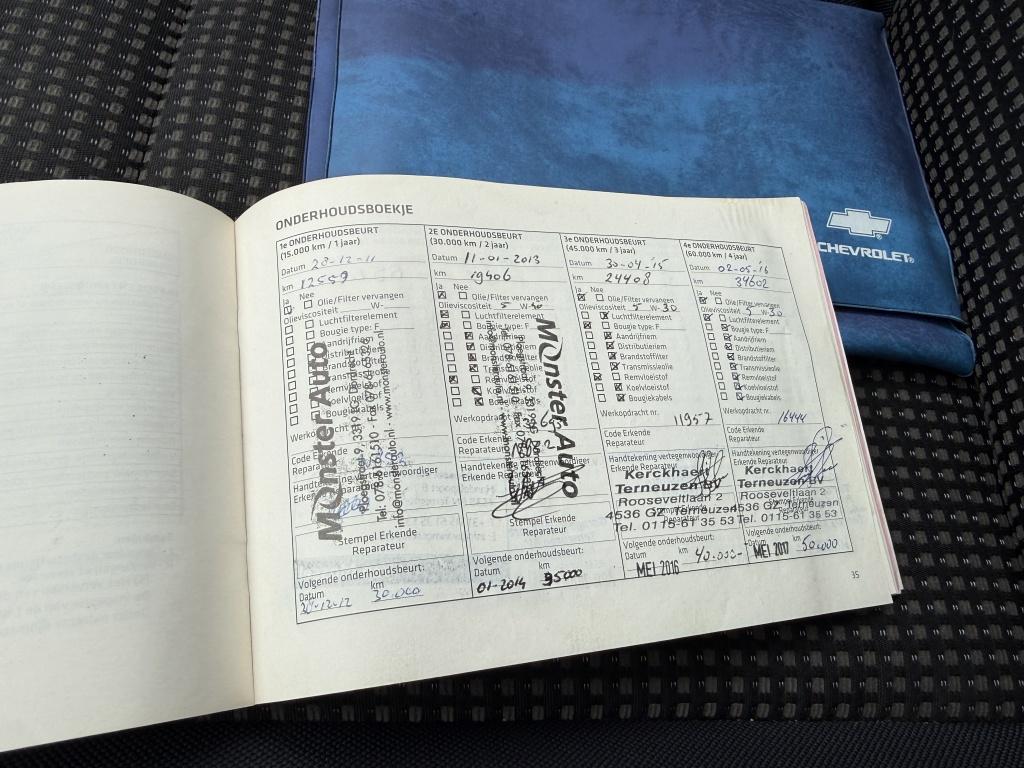 CHEVROLET
ONDERHOUDSBOEKJE
1e ONDERHOUDSBEURT
(15.000 km / 1 jaar)
Datum 28-12-11
km 12559
Ja Nee
Olie/Filter vervangen
Olieviscositeit W-
Luchtfilterelement
Bougie type: F
Aandrijfriem
Distributieriem
Brandstoffilter
Transmissieolie
Remvloeistof
Koelvloeistof
Bougiekabels
Werkopdracht
Code Erkende
Reparateur
Handtekening vertegenwoordiger
Monster Auto
3319 Dordrecht
info@monsterauto.nl - www.monsterauto.nl
Stempel Erkende
Reparateur
Volgende onderhoudsbeurt:
Datum km
30.000
2E ONDERHOUDSBEURT
(30.000 km / 2 jaar)
Datum 11-01-2013
km 19406
Ja Nee
Olie/Filter vervangen
Olieviscositeit 5 W-30
Luchtfilterelement
Bougie type: F
Aandrijfriem
Distributieriem
Brandstoffilter
Transmissieolie
Remvloeistof
Koelvloeistof
Bougiekabels
Werkopdracht
Code Erkende
Reparateur
Handtekening
Erkende Reparateur
Monster Auto
Stempel Erkende
Reparateur
Volgende onderhoudsbeurt:
Datum km
01-2014 35000
3e ONDERHOUDSBEURT
(45.000 km / 3 jaar)
Datum 30-04-'15
km 24408
Ja Nee
Olie/Filter vervangen
Olieviscositeit 5 W-30
Luchtfilterelement
Bougie type: F
Aandrijfriem
Distributieriem
Brandstoffilter
Transmissieolie
Remvloeistof
Koelvloeistof
Bougiekabels
Werkopdracht nr. 11957
Code Erkende
Reparateur
Handtekening vertegenwoordiger
Erkende Reparateur
Kerckhaert
Terneuzen BV
Rooseveltlaan 2
4536 GZ Terneuzen
Tel. 0115-61 35 53
Volgende onderhoudsbeurt:
Datum km
MEI 2016 40.000-
4e ONDERHOUDSBEURT
(60.000 km / 4 jaar)
Datum 02-05-'16
km 34602
Ja Nee
Olie/Filter vervangen
Olieviscositeit 5 W-30
Luchtfilterelement
Bougie type: F
Aandrijfriem
Distributieriem
Brandstoffilter
Transmissieolie
Remvloeistof
Koelvloeistof
Bougiekabels
Werkopdracht nr. 16444
Code Erkende
Reparateur
Handtekening vertegenwoordiger
Erkende Reparateur
Kerckhaert
Terneuzen BV
Rooseveltlaan 2
4536 GZ Terneuzen
Tel. 0115-61 35 53
Volgende onderhoudsbeurt:
Datum km
MEI 2017 50.000
35